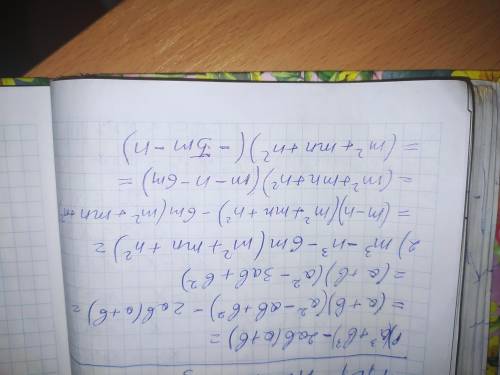 (a³+b³)-2ab(a+b)=
=(a+b)(a²-ab+b²)-2ab(a+b)=
=(a+b)(a²-3ab+b²)
2) m³-n³-6m(m²+mn+n²)=
=(m-n)(m²+mn+n²)-6m(m²+mn+n²
=(m²+mn+n²)(m-n-6m)=
=(m²+mn+n²)(-5m-n)